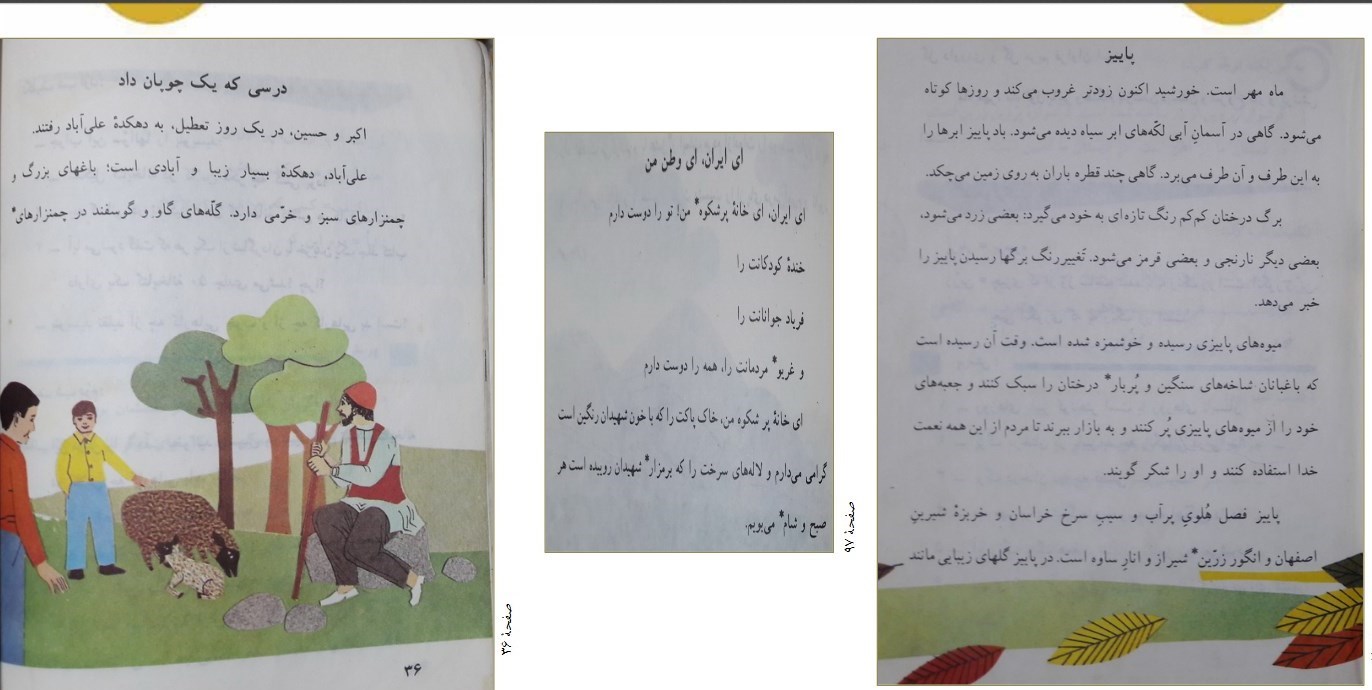 پاییز
ماه مهر است. خورشید اکنون زودتر غروب می‌کند و روزها کوتاه
می‌شود. گاهی در آسمانِ آبی لکّه‌های ابر سیاه دیده می‌شود. باد پاییز ابرها را
به این طرف و آن طرف می‌برد. گاهی چند قطره باران به روی زمین می‌چکد.
برگ درختان کم‌کم رنگ تازه‌ای به خود می‌گیرد: بعضی زرد می‌شود،
بعضی دیگر نارنجی و بعضی قرمز می‌شود. تغییر رنگ برگها رسیدن پاییز را
خبر می‌دهد.
میوه‌های پاییزی رسیده و خوشمزه شده است. وقت آن رسیده است
که باغبانان شاخه‌های سنگین و پُربار* درختان را سبک کنند و جعبه‌های
خود را از میوه‌های پاییزی پُر کنند و به بازار ببرند تا مردم از این همه نعمت
خدا استفاده کنند و او را شکر گویند.
پاییز فصل هُلویِ پرآب و سیبِ سرخ خراسان و خربزهٔ شیرینِ
اصفهان و انگور زرّین* شیراز و انارِ ساوه است. در پاییز گلهای زیبایی مانند
ای ایران، ای وطن من
ای ایران، ای خانهٔ پرشکوه* من! تو را دوست دارم
خندهٔ کودکانت را
فریاد جوانانت را
و غریو* مردمانت را، همه را دوست دارم
ای خانهٔ پر شکوه من، خاک پاکت را که با خون شهیدان رنگین است
گرامی می‌دارم و لاله‌های سرخت را که بر مزار* شهیدان روییده است هر
صبح و شام* می‌بویم.
صفحهٔ ۹۷
درسی که یک چوپان داد
اکبر و حسین، در یک روز تعطیل، به دهکدهٔ علی‌آباد رفتند.
علی‌آباد، دهکدهٔ بسیار زیبا و آبادی است؛ باغهای بزرگ و
چمنزارهای سبز و خرّمی دارد. گلّه‌های گاو و گوسفند در چمنزارهای*
۳۶
صفحهٔ ۳۶